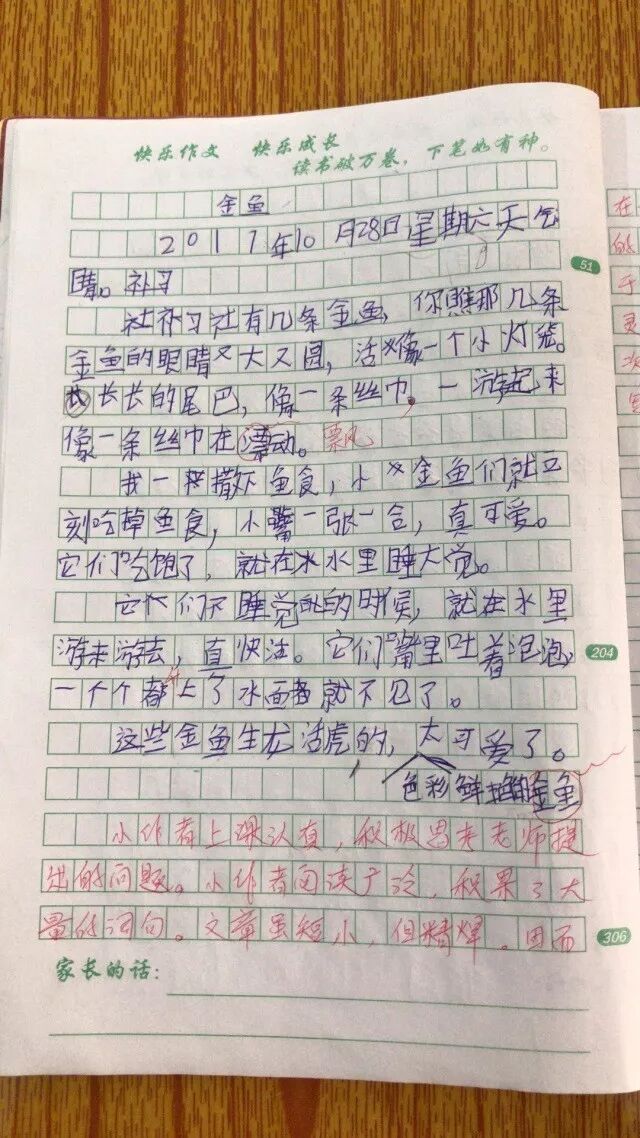 快乐作文 快乐成长
读书破万卷，下笔如有神。
金鱼
2017年10月28日星期六天气
晴。补习
社补习社有几条金鱼，你瞧那几条
金鱼的眼睛又大又圆，活像一个小灯笼。
长长的尾巴，像一条丝巾。一游起来
像一条丝巾在漂动。飘
我一撒下鱼食，小金鱼们就立
刻吃掉鱼食，小嘴一张一合，真可爱。
它们吃饱了，就在水里睡大觉。
它们不睡觉的时候，就在水里
游来游去，直快活。它们嘴里吐着泡泡，
一个个都上了水面就不见了。
51
204
这些金鱼生龙活虎的，太可爱了。
色彩鲜艳的金鱼
小作者上课认真，积极思考老师提
出的问题。小作者阅读广泛，积累了大
量的词句。文章虽短小，但精悍。因而
306
家长的话：